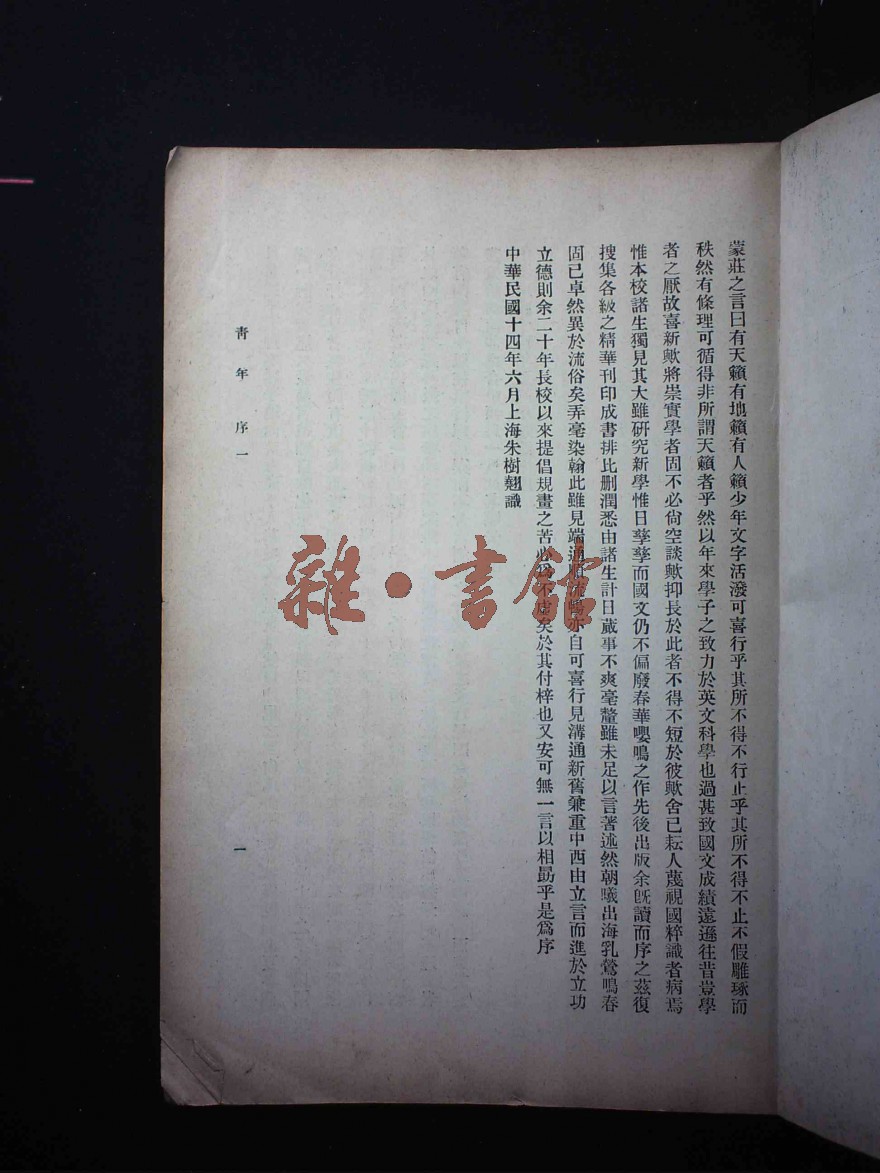 蒙莊之言曰有天籟有地籟有人籟少年文字活潑可喜行乎其所不得不行止乎其所不得不止不假雕琢而
秩然有條理可循得非所謂天籟者乎然以年來學子之致力於英文科學也過甚致國文成績遠遜往昔豈學
者之厭故喜新歟將崇實學者固不必尙空談歟抑長於此者不得不短於彼歟舍己耘人蔑視國粹識者病焉
惟本校諸生獨見其大雖研究新學惟日孳孳而國文仍不偏廢春華嚶鳴之作先後出版余旣讀而序之茲復
搜集各級之精華刊印成書排比删潤悉由諸生計日蕆事不爽毫釐雖未足以言著述然朝曦出海乳鶯鳴春
固已卓然異於流俗矣弄毫染翰此雖見端通順流暢亦自可喜行見溝通新舊兼重中西由立言而進於立功
立德則余二十年長校以來提倡規畫之苦心爲不虛矣於其付梓也又安可無一言以相勗乎是爲序
中華民國十四年六月上海朱樹翹識
靑年 序一
一
雜·書館